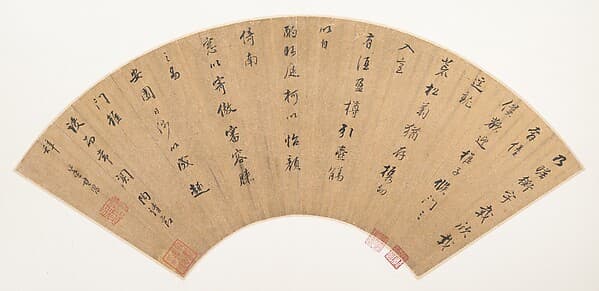 乃瞻衡宇載欣載
奔僮
僕歡迎稚子候門三
逕就
荒松菊猶存攜幼
入室
有酒盈樽引壺觴
以自
酌眄庭柯以怡顏
倚南
窗以寄傲審容膝
之易
安園日涉以成趣
門雖
設而常關 陶靖節
辭